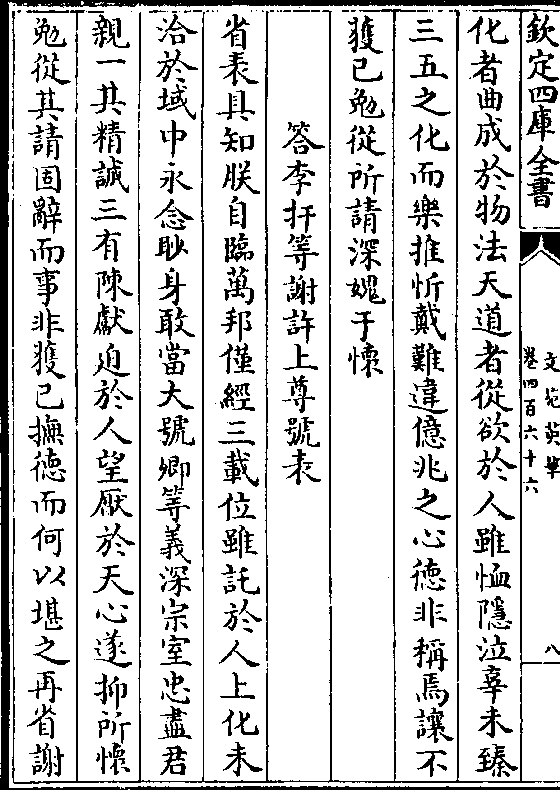 欽定四庫全書
文苑英華
卷四百六十六
八
化者曲成於物法天道者從欲於人雖恤隱泣辜未臻
三五之化而樂推忻戴難違億兆之心德非稱焉讓不
獲已勉從所請深媿于懷
答李扞等謝許上尊號表
省表具知朕自臨萬邦僅經三載位雖託於人上化未
洽於域中永念眇身敢當大號卿等義深宗室忠盡君
親一其精誠三有陳獻迫於人望厭於天心遂抑所懷
勉從其請固辭而事非獲已撫德而何以堪之再省謝